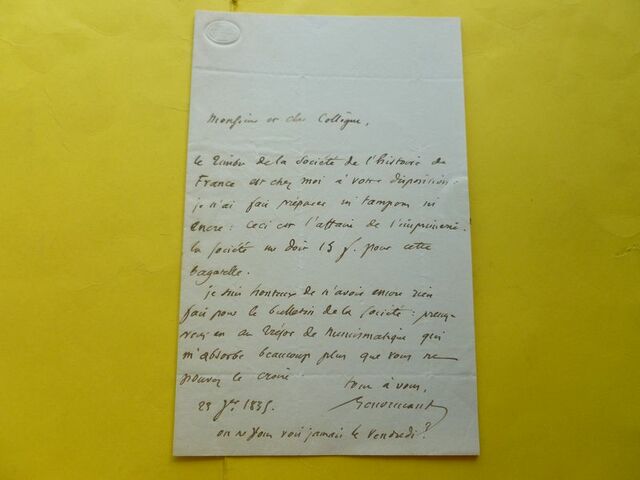 Monsieur et cher Collègue,
le timbre de la Société de l'histoire de
France est chez moi à votre disposition.
je n'ai fait préparer ni tampon ni
encre : ceci est l'affaire de l'imprimerie.
la Société me doit 15 f. pour cette
bagatelle.
je suis honteux de n'avoir encore rien
fait pour le bulletin de la Société : prenez
vous en au Trésor de Numismatique qui
m'absorbe beaucoup plus que vous ne
pouvez le croire
tout à vous,
23 1835.
on ne vous voit jamais le Vendredi ?